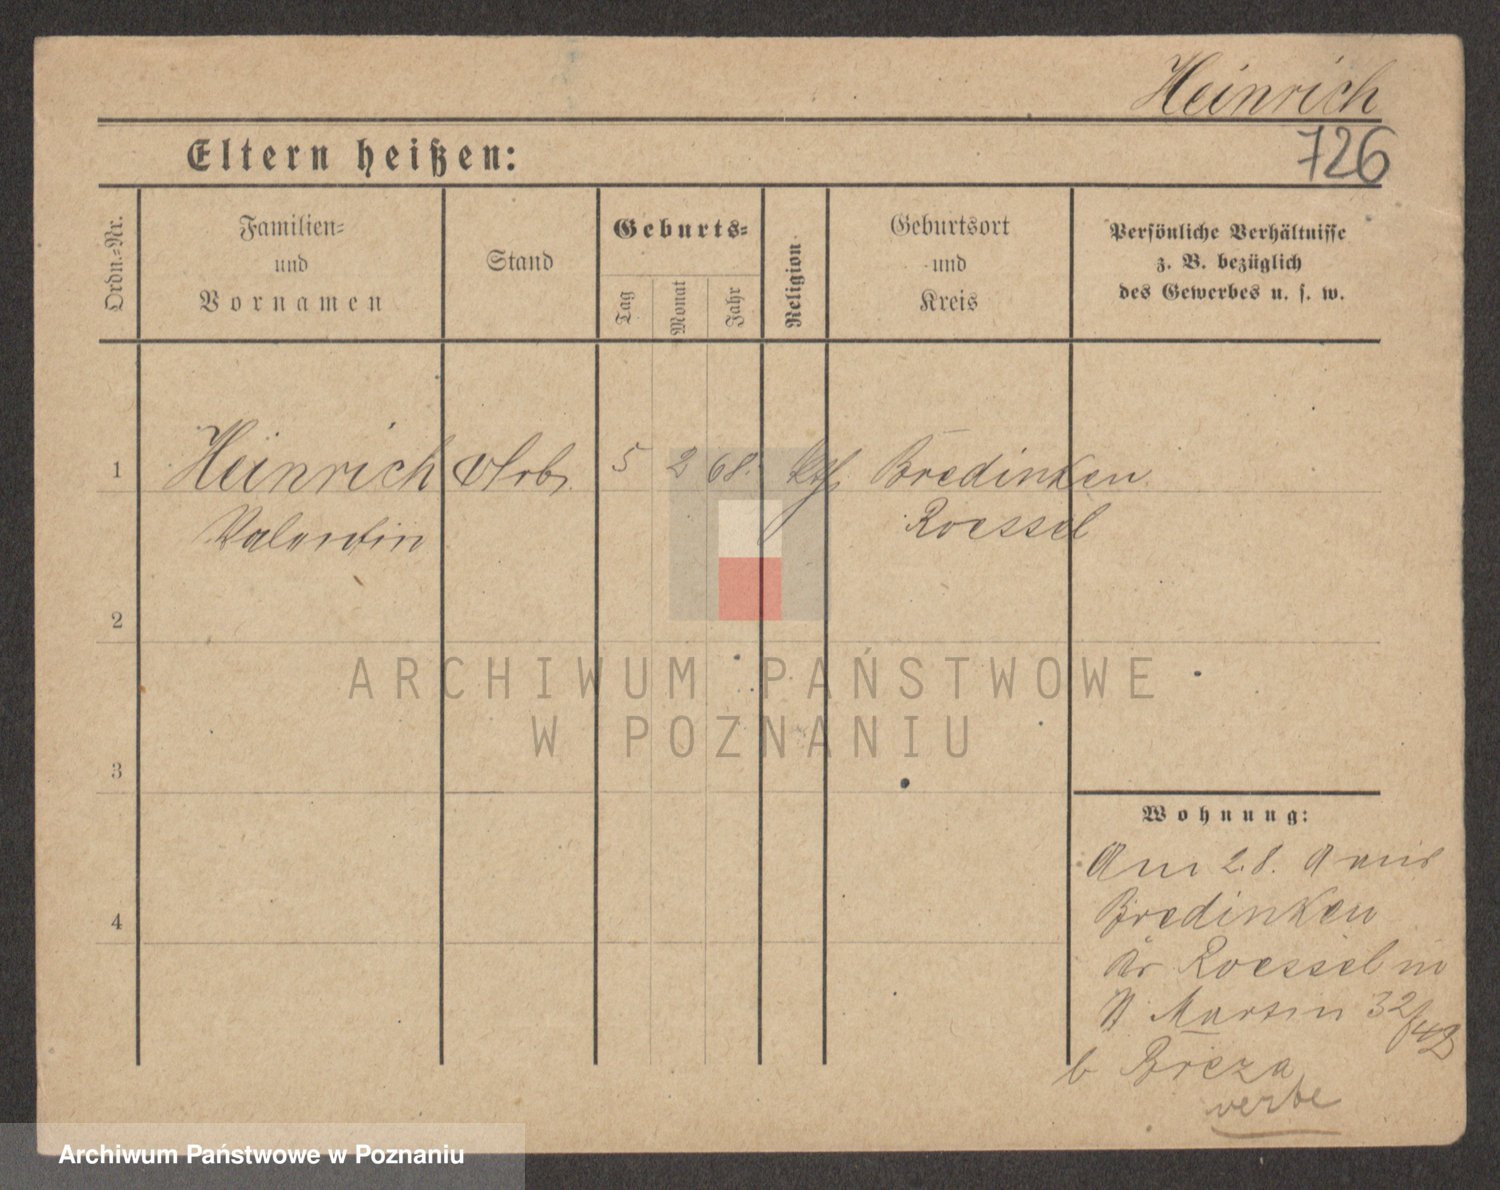 Heinrich
726
Eltern heißen:
Ordn.-Nr.
Familien-
und
Vornamen
Stand
Geburts-
Tag
Monat
Jahr
Religion
Geburtsort
und
Kreis
Persönliche Verhältnisse
z. B. bezüglich
des Gewerbes u. s. w.
1 Heinrich Arb. 5 2 68. kth Bredinken
Valentin Roessel
2
3
4
Wohnung:
Am 2.8. 9 aus
Bredinken
Kr Roessel in
St Martin 32/42
b Breza
ARCHIWUM PAŃSTWOWE
W POZNANIU
Archiwum Państwowe w Poznaniu